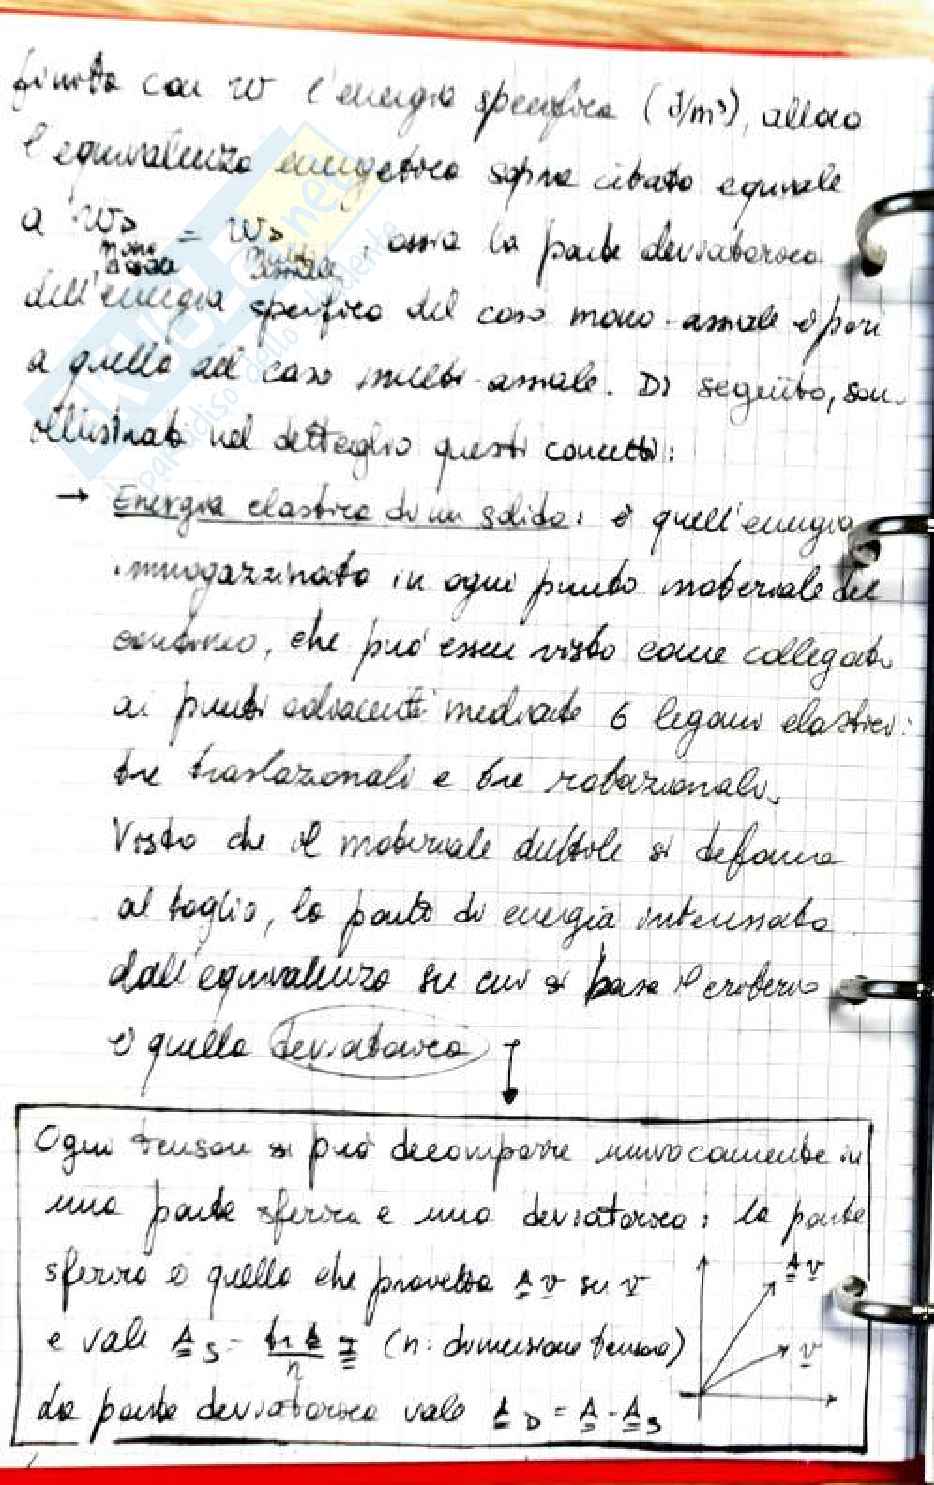 finita con w l'energia specifica (J/m³), allora
l'equivalenza energetica sopra citata equivale
a w_D mono assiale = w_D multi assiale, ossia la parte deviatorica
dell'energia specifica del caso mono-assiale è pari
a quella del caso multi-assiale. Di seguito, son
illustrati nel dettaglio questi concetti:
→ Energia elastica di un solido: è quell'energia
immagazzinata in ogni punto materiale del
continuo, che può essere visto come collegato
ai punti adiacenti mediante 6 legami elastici:
tre traslazionali e tre rotazionali.
Visto che il materiale duttile si deforma
al taglio, la parte di energia interessata
dall'equivalenza su cui si basa il criterio
è quella deviatorica
Ogni tensore si può decomporre univocamente in
una parte sferica e una deviatorica: la parte
sferica è quella che proietta A v su v
e vale A_S = tr A / n I (n: dimensione tensore)
La parte deviatorica vale A_D = A - A_S
A v
v
SKUOLA.net
il paradiso dello studente